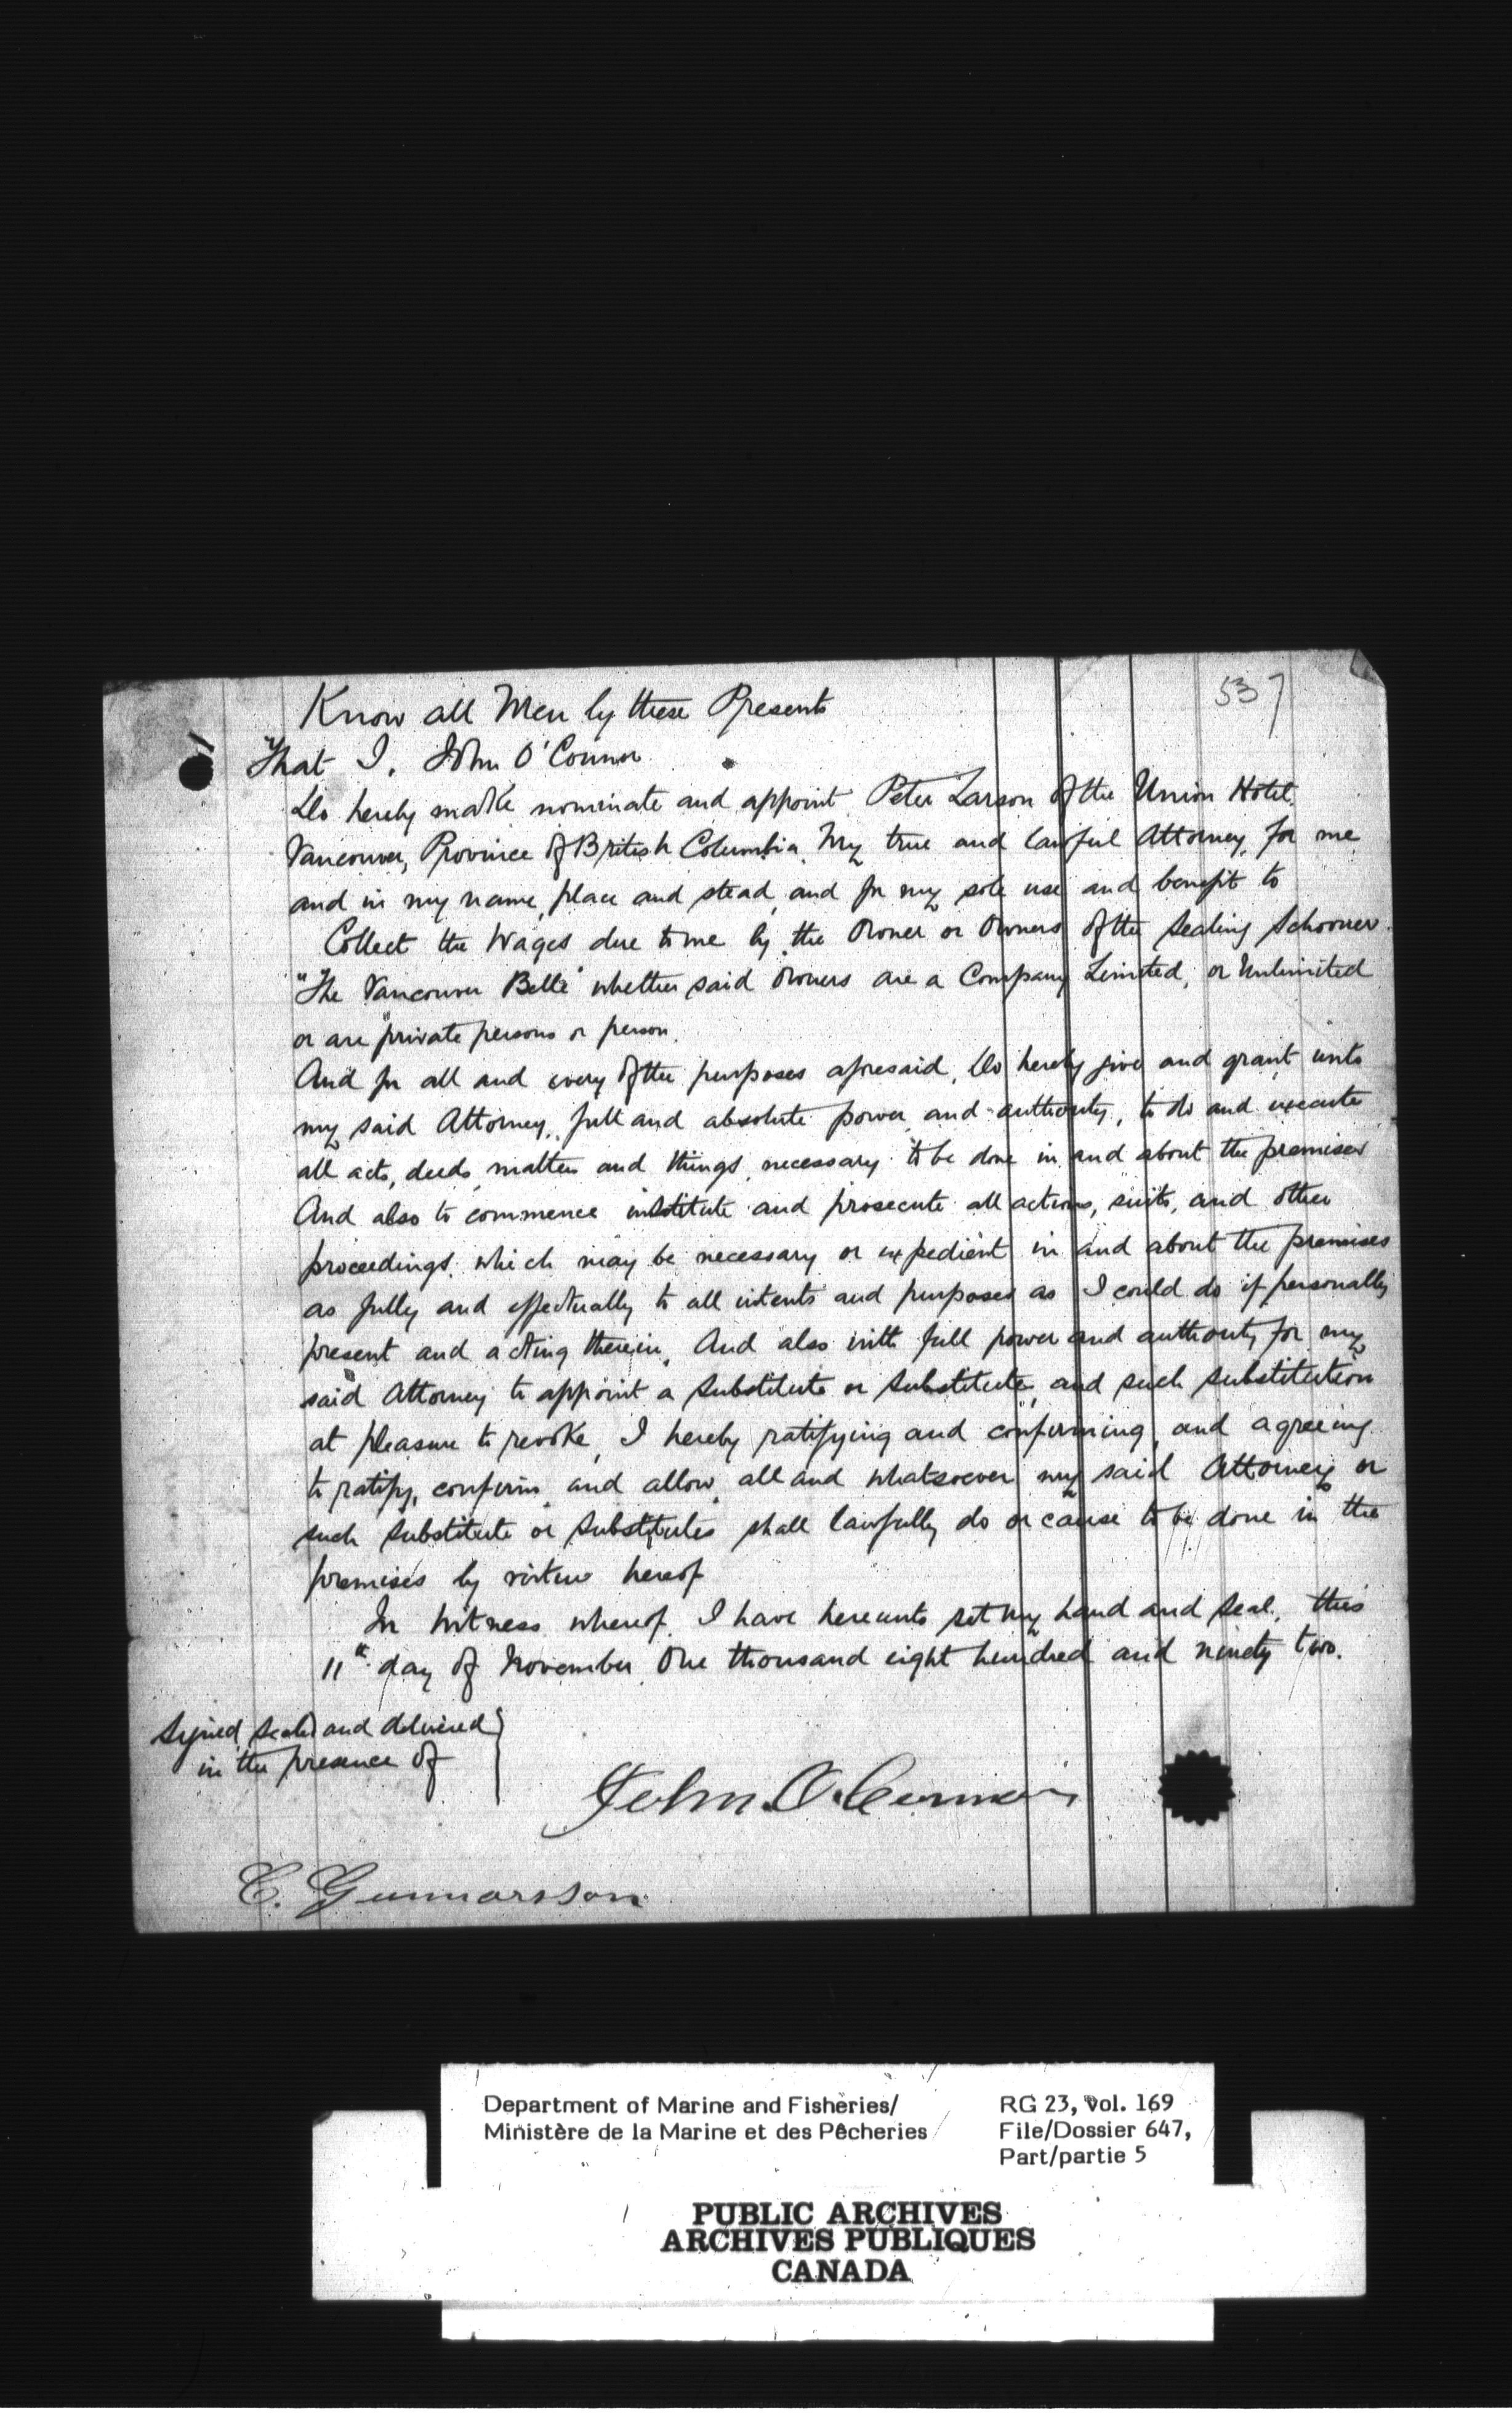 537
Know all Men by these Presents
That I, John O'Connor
Do hereby make nominate and appoint Peter Larson of the Union Hotel,
Vancouver, Province of British Columbia, My true and lawful Attorney, for me
and in my name, place and stead, and for my sole use and benefit to
Collect the Wages due to me by the Owner or Owners of the Sealing Schooner
"The Vancouver Belle" whether said Owners are a Company Limited, or Unlimited
or are private persons or person.
And for all and every of the purposes aforesaid, Do hereby give and grant unto
my said Attorney, full and absolute power and authority, to do and execute
all acts, deeds, matters and things, necessary to be done in and about the premises
And also to commence institute and prosecute all actions, suits, and other
proceedings, which may be necessary or expedient in and about the premises
as fully and effectually to all intents and purposes as I could do if personally
present and acting therein. And also with full power and authority for my
said Attorney to appoint a Substitute or Substitutes, and such substitution
at pleasure to revoke, I hereby ratifying and confirming, and agreeing
to ratify, confirm and allow, all and whatsoever my said Attorney or
such Substitute or Substitutes shall lawfully do or cause to be done in the
premises by virtue hereof
In Witness whereof, I have hereunto set my hand and Seal, this
11th day of November One thousand eight hundred and ninety two.
Signed, Sealed and delivered
in the presence of
John O.Connor
C. Gunnarsson
Department of Marine and Fisheries/
Ministère de la Marine et des Pêcheries
RG 23, Vol. 169
File/Dossier 647,
Part/partie 5
PUBLIC ARCHIVES
ARCHIVES PUBLIQUES
CANADA